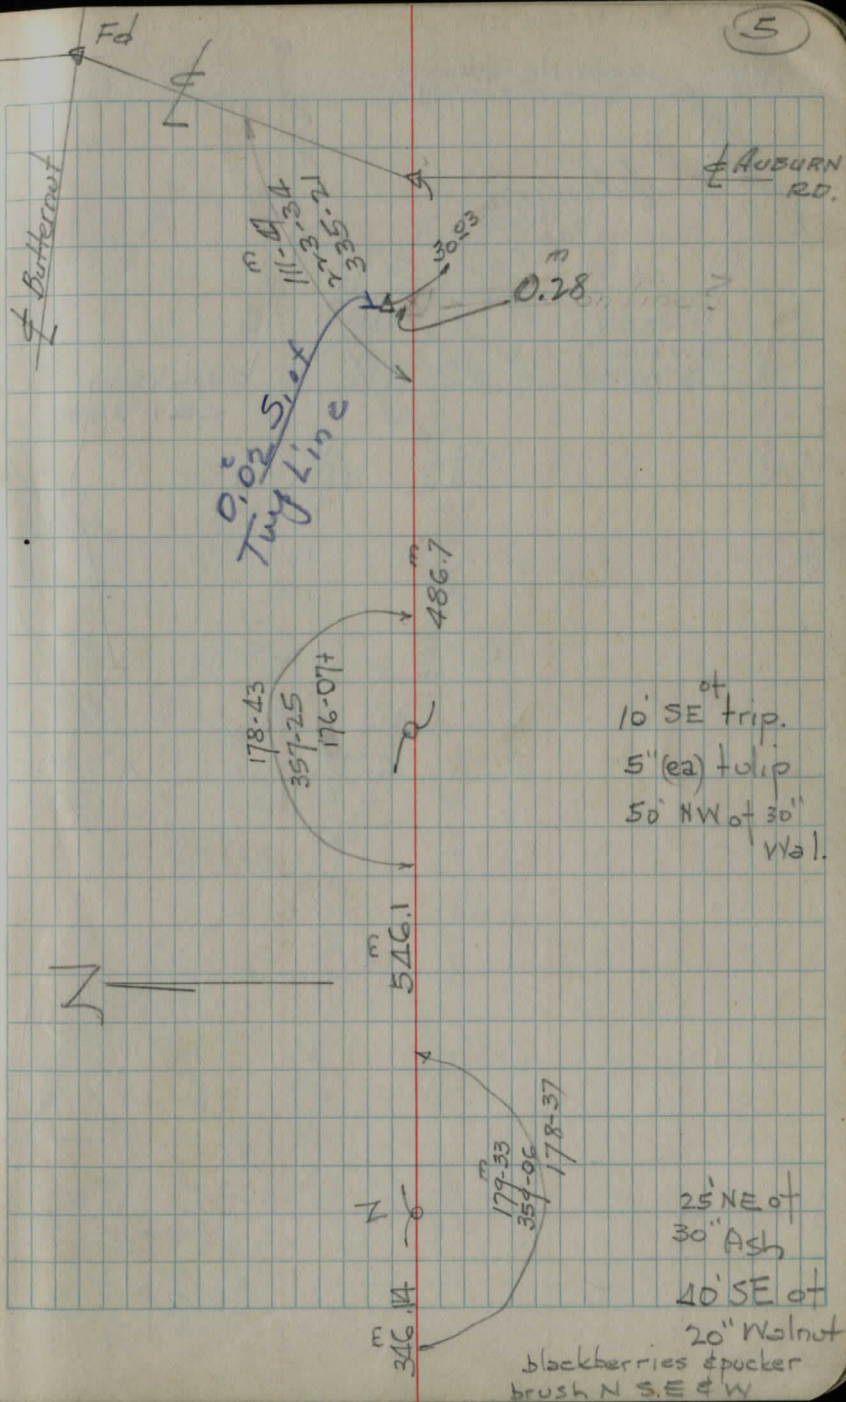 5
Fd
℄ AUBURN
RD.
℄ Butternut
m
273-34
335-21
30.03
m
0.28
on line ?
0.02 S. of
Twy Line
m
486.7
178-43
357-25
176-07+
10' SE of trip.
5" (ea) tulip
50' NW of 30"
Wal.
m
546.1
m
179-33
359-06
178-37
N
25' NE of
30" Ash
40' SE of
20" Walnut
m
346.14
blackberries & pucker
brush N S.E & W